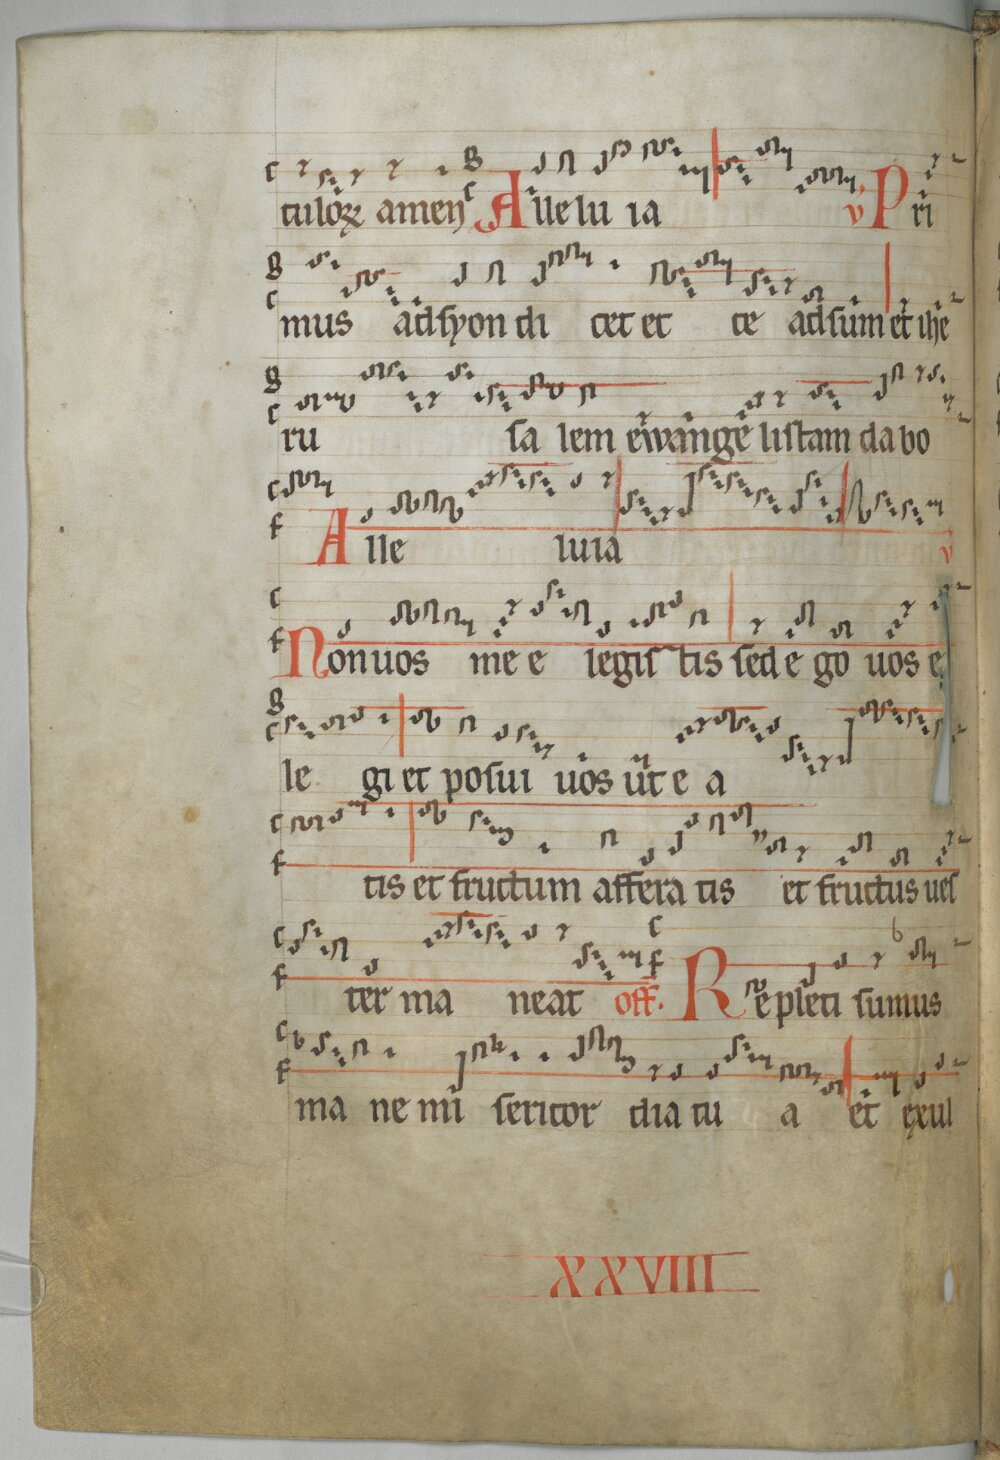 culoꝝ amen Alleluia v̉ Pri
mus ad syon di cet ec ce adsum et ihe
ru sa lem ewange listam dabo
Alle luia v
Non uos me e legis tis sed e go uos e
le gi et posui uos ut e a
tis et fructum affera tis et fructus ues
ter ma neat off. Re pleti sumus
ma ne mi sericor dia tu a et exul
XXVIIII